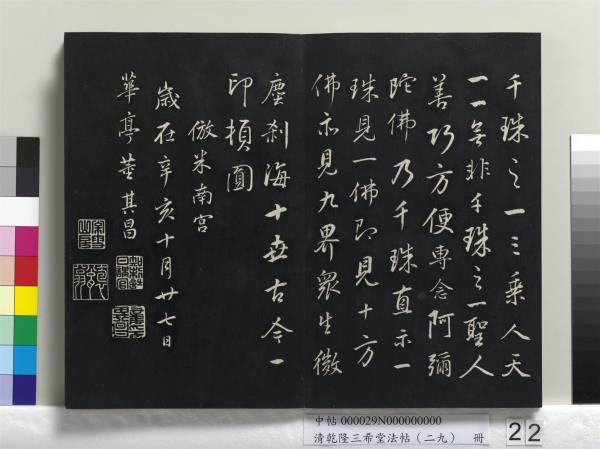 千珠之一三乘人天
一一無非千珠之一聖人
善巧方便專念阿彌
陀佛乃千珠直示一
珠見一佛即見十方
佛亦見九界眾生微
塵剎海十世古今一
印頓圓
倣米南宮
歲在辛亥十月廿七日
華亭董其昌
中帖 000029N000000000
清乾隆三希堂法帖(二九) 冊
22